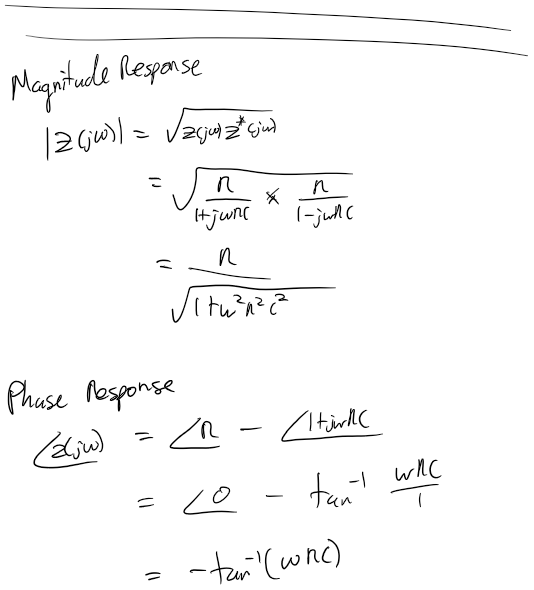 Magnitude Response
|Z(jω)| = √(Z(jω) Z*(jω))
= √(R/(1+jωRC) × R/(1-jωRC))
= R/√(1+ω²R²C²)
Phase Response
∠Z(jω) = ∠R - ∠1+jωRC
= ∠0 - tan⁻¹ ωRC/1
= -tan⁻¹(ωRC)